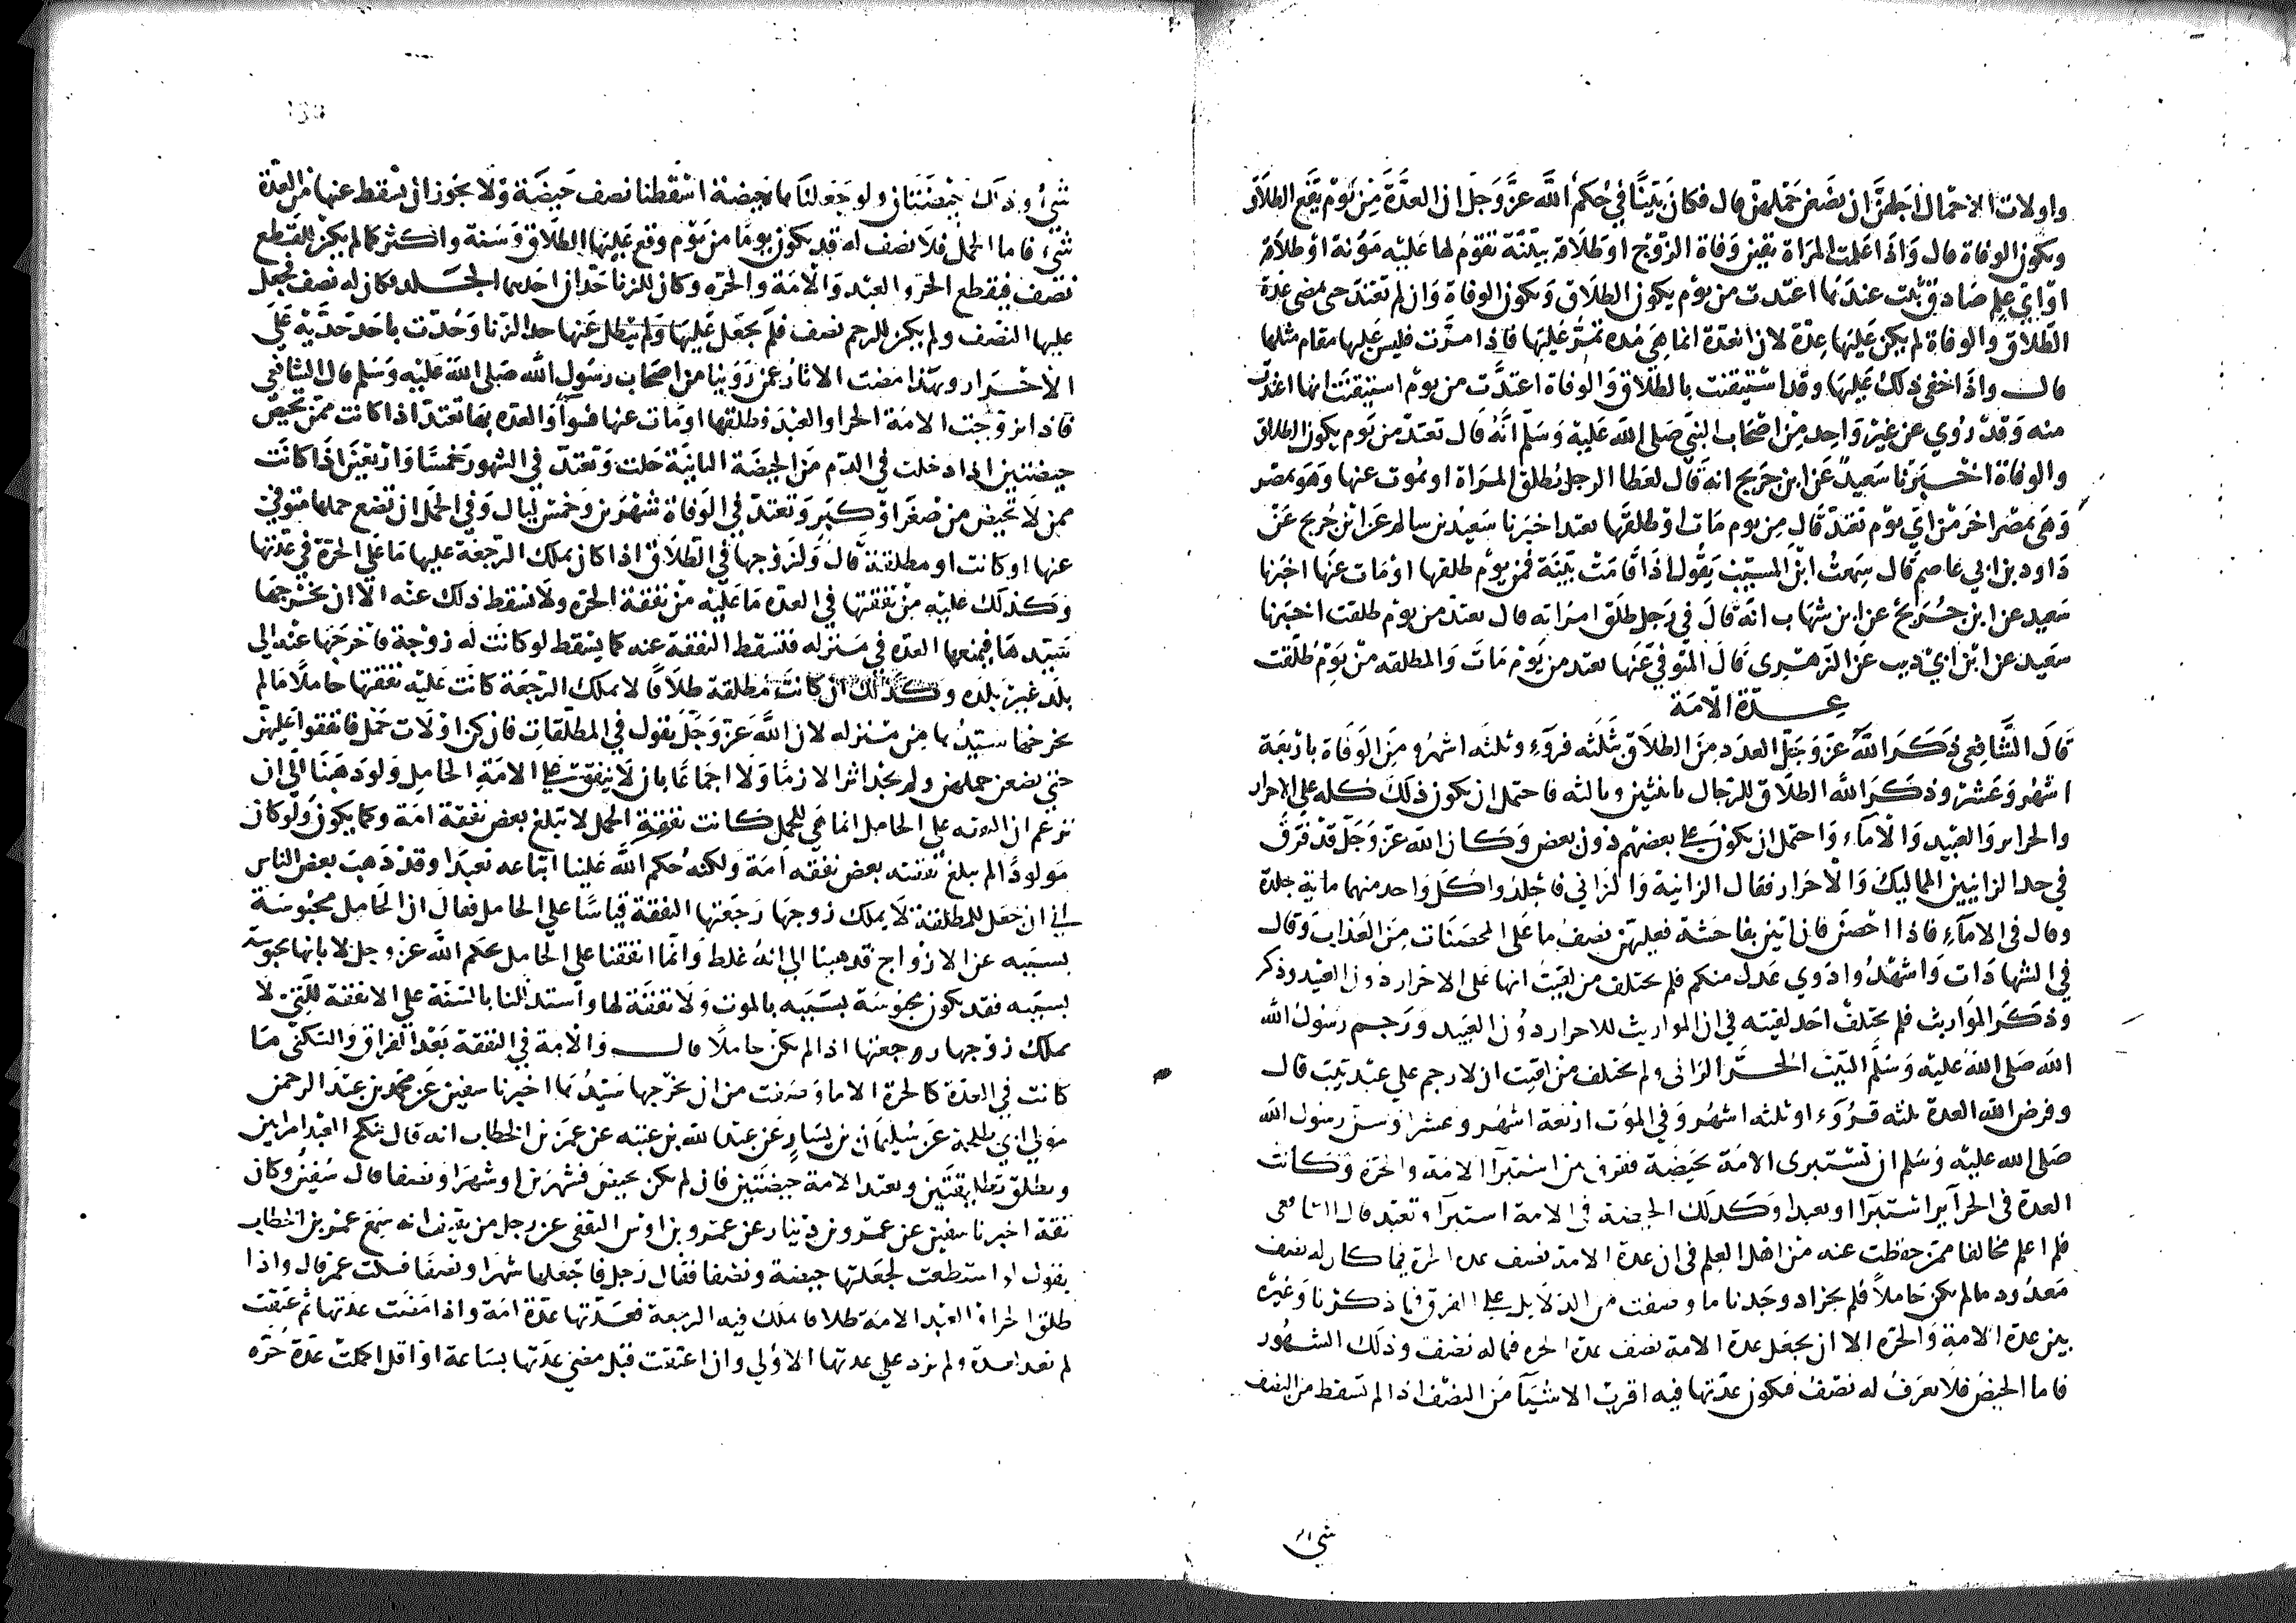 واولات الاحمال اجلهن ان يضعن حملهن قال فكان بينا في حكم الله عز وجل ان العدة من يوم يقع الطلاق
وتكون الوفاة قال واذا علمت المراة يقين وفاة الزوج او طلاقه ببينة تقوم لها علىه موته او طلاقه
او اي علم صادق ثبت عندها اعتدت من يوم يكون الطلاق وتكون الوفاة وان لم تعتد حتى تمضي عدة
الطلاق والوفاة لم يكن عليها عدة لان العدة انما هي مدة تمر عليها فاذا مرت فليس عليها مقام مثلها
قال واذا خفي ذلك عليها وقد استيقنت بالطلاق والوفاة اعتدت من يوم استيقنت انها اعتدت
منه وقد روي عن غير واحد من اصحاب النبي صلى الله عليه وسلم انه قال تعتد من يوم يكون الطلاق
والوفاة اخبرنا سعيد عن ابن جريج انه قال لعطا الرجل يطلق المراة او يموت عنها وهو بمصر
وهي بمصر اخر من اي يوم تعتد قال من يوم مات او طلقها تعتد اخبرنا سعيد بن سالم عن ابن جريج عن
داود بن ابي عاصم قال سمعت ابن المسيب يقول اذا قامت بينة فمن يوم طلقها او مات عنها اخبرنا
سعيد عن ابن جريج عن ابن شهاب انه قال في رجل طلق امراته قال تعتد من يوم طلقت اخبرنا
سعيد عن ابن ابي ذيب عن الزهري قال المتوفى عنها تعتد من يوم مات والمطلقه من يوم طلقت
عدة الامة
قال الشافعي ذكر الله عز وجل العدد من الطلاق بثلثه قروء وثلثه اشهر ومن الوفاة باربعة
اشهر وعشر وذكر الله الطلاق للرجال باثنتين وبالثه فاحتمل ان يكون ذلك كله على الاحرار
والحراير والعبيد والاماء واحتمل ان يكون على بعضهم دون بعض وكان الله عز وجل قد فرق
في حد الزانيين المماليك والاحرار فقال الزانية والزاني فاجلدوا كل واحد منهما ماية جلدة
وقال في الاماء فاذا احصن فان اتين بفاحشة فعليهن نصف ما على المحصنات من العذاب وقال
في الشهادات واشهدوا ذوي عدل منكم فلم يختلف من لقيت انها على الاحرار دون العبيد وذكر
وذكر المواريث فلم يختلف احد لقيته في ان المواريث للاحرار دون العبيد ورجم رسول الله
الله صلى الله عليه وسلم الثيب الحر الزانى ولم يختلف من لقيت ان لا رجم على عبد ثيب قال
وفرض الله العدة ثلثه قروء او ثلثه اشهر وفي الموت اربعة اشهر وعشرا وسن رسول الله
صلى الله عليه وسلم ان تستبرى الامة بحيضة ففرق بين استبرا الامة والحرة وكانت
العدة في الحراير استبرا او تعبدا وكذلك الحيضة في الامة استبرا وتعبد قال الشافعي
فلم اعلم مخالفا ممن حفظت عنه من اهل العلم في ان عدة الامة نصف عدة الحرة فيما كان له نصف
معدود ما لم تكن حاملا فلم يجز اذ وجدنا ما وصفت من الدلايل على الفرق فيما ذكرنا وغيره
بين عدة الامة والحره الا ان نجعل عدة الامة نصف عدة الحره فيما له نصف وذلك الشهور
فاما الحيض فلا يعرف له نصف فتكون عدتها فيه اقرب الاشيا من النصف اذا لم تسقط من النصف
شي
شيء وذلك حيضتان ولو جعلناها حيضة اسقطنا نصف حيضة ولا يجوز ان يسقط عنها من العدة
شيء فاما الحمل فلا نصف له قد يكون يوما من يوم وقع عليها الطلاق وسنة واكثر كما لم يكن للقطع
نصف فيقطع الحر والعبد والامة والحره وكان للزنا حدان احدهما الجلد فكان له نصف فجعل
عليها النصف ولم يكن للرجم نصف فلم يجعل عليها ولم يبطل عنها حد الزنا وحدت باحد حديه على
الاحرار وبهذا مضت الاثار عمن روينا من اصحاب رسول الله صلى الله عليه وسلم قال الشافعي
فاذا تزوجت الامة الحر او العبد فطلقها او مات عنها فسوا والعده بها تعتد اذا كانت ممن تحيض
حيضتين اذا دخلت في الدم من الحيضة الثانية حلت وتعتد في الشهور خمسا واربعين اذا كانت
ممن لا تحيض من صغر او كبر وتعتد في الوفاة شهرين وخمس ليال وفي الحمل ان تضع حملها متوفى
عنها او كانت او مطلقة قال ولزوجها في الطلاق اذا كان يملك الرجعة عليها ما على الحرة في عدتها
وكذلك عليه من نفقتها في العده ما عليه من نفقة الحره ولا تسقط ذلك عنه الا ان يخرجها
سيدها فيمنعها العدة في منزله فتسقط النفقة عنه كما يسقط لو كانت له زوجة فاخرجها عنه الى
بلد غير بلده وكذلك ان كانت مطلقة طلاقا لا يملك الرجعة كانت عليه نفقتها حاملا ما لم
يخرجها سيدها من منزله لان الله عز وجل يقول في المطلقات فان كن اولات حمل فانفقوا عليهن
حتى يضعن حملهن ولم نجد اثرا لازما ولا اجماعا بان لا ينفق على الامة الحامل ولو ذهبنا الى ان
نزعم ان النفقه على الحامل انما هي للحمل كانت نفقة الحمل لا تبلغ بعض نفقة امة وكما يكون ولو كان
مولودا لم يبلغ نفقته بعض نفقه امة ولكنه حكم الله علينا اتباعه تعبدا وقد ذهب بعض الناس
الى ان جعل للمطلقة لا يملك زوجها رجعتها النفقة قياسا على الحامل فقال ان الحامل محبوسة
بسببه عن الازواج فذهبنا الى انه غلط وانما انفقنا على الحامل بحكم الله عز وجل لا بانها محبوسة
بسببه فقد يكون محبوسة بسببه بالموت ولا نفقة لها واستدللنا بالسنة على الا نفقة للتي لا
يملك زوجها رجعتها اذا لم تكن حاملا قال والامة في النفقة بعد الفراق والسكنى ما
كانت في العدة كالحرة الا ما وصفت من ان يخرجها سيدها اخبرنا سفين عن محمد بن عبد الرحمن
مولى ابي طلحة عن سليمان بن يسار عن عبد الله بن عتبه عن عمر بن الخطاب انه قال ينكح العبد امراتين
ويطلق تطليقتين وتعتد الامة حيضتين فان لم تكن تحيض فشهرين او شهرا ونصفا قال سفين وكان
ثقة اخبرنا سفين عن عمرو بن دينار عن عمرو بن اوس الثقفي عن رجل من ثقيف انه سمع عمر بن الخطاب
يقول لو استطعت لجعلتها حيضة ونصفا فقال رجل فاجعلها شهرا ونصفا فسكت عمر قال واذا
طلق الحر او العبد الامة طلاقا يملك فيه الرجعة فعدتها عدة امة واذا مضت عدتها ثم عتقت
لم تعد لعدة ولم تزد على عدتها الاولى وان اعتقت قبل مضي عدتها بساعة او اقل اكملت عدة حره